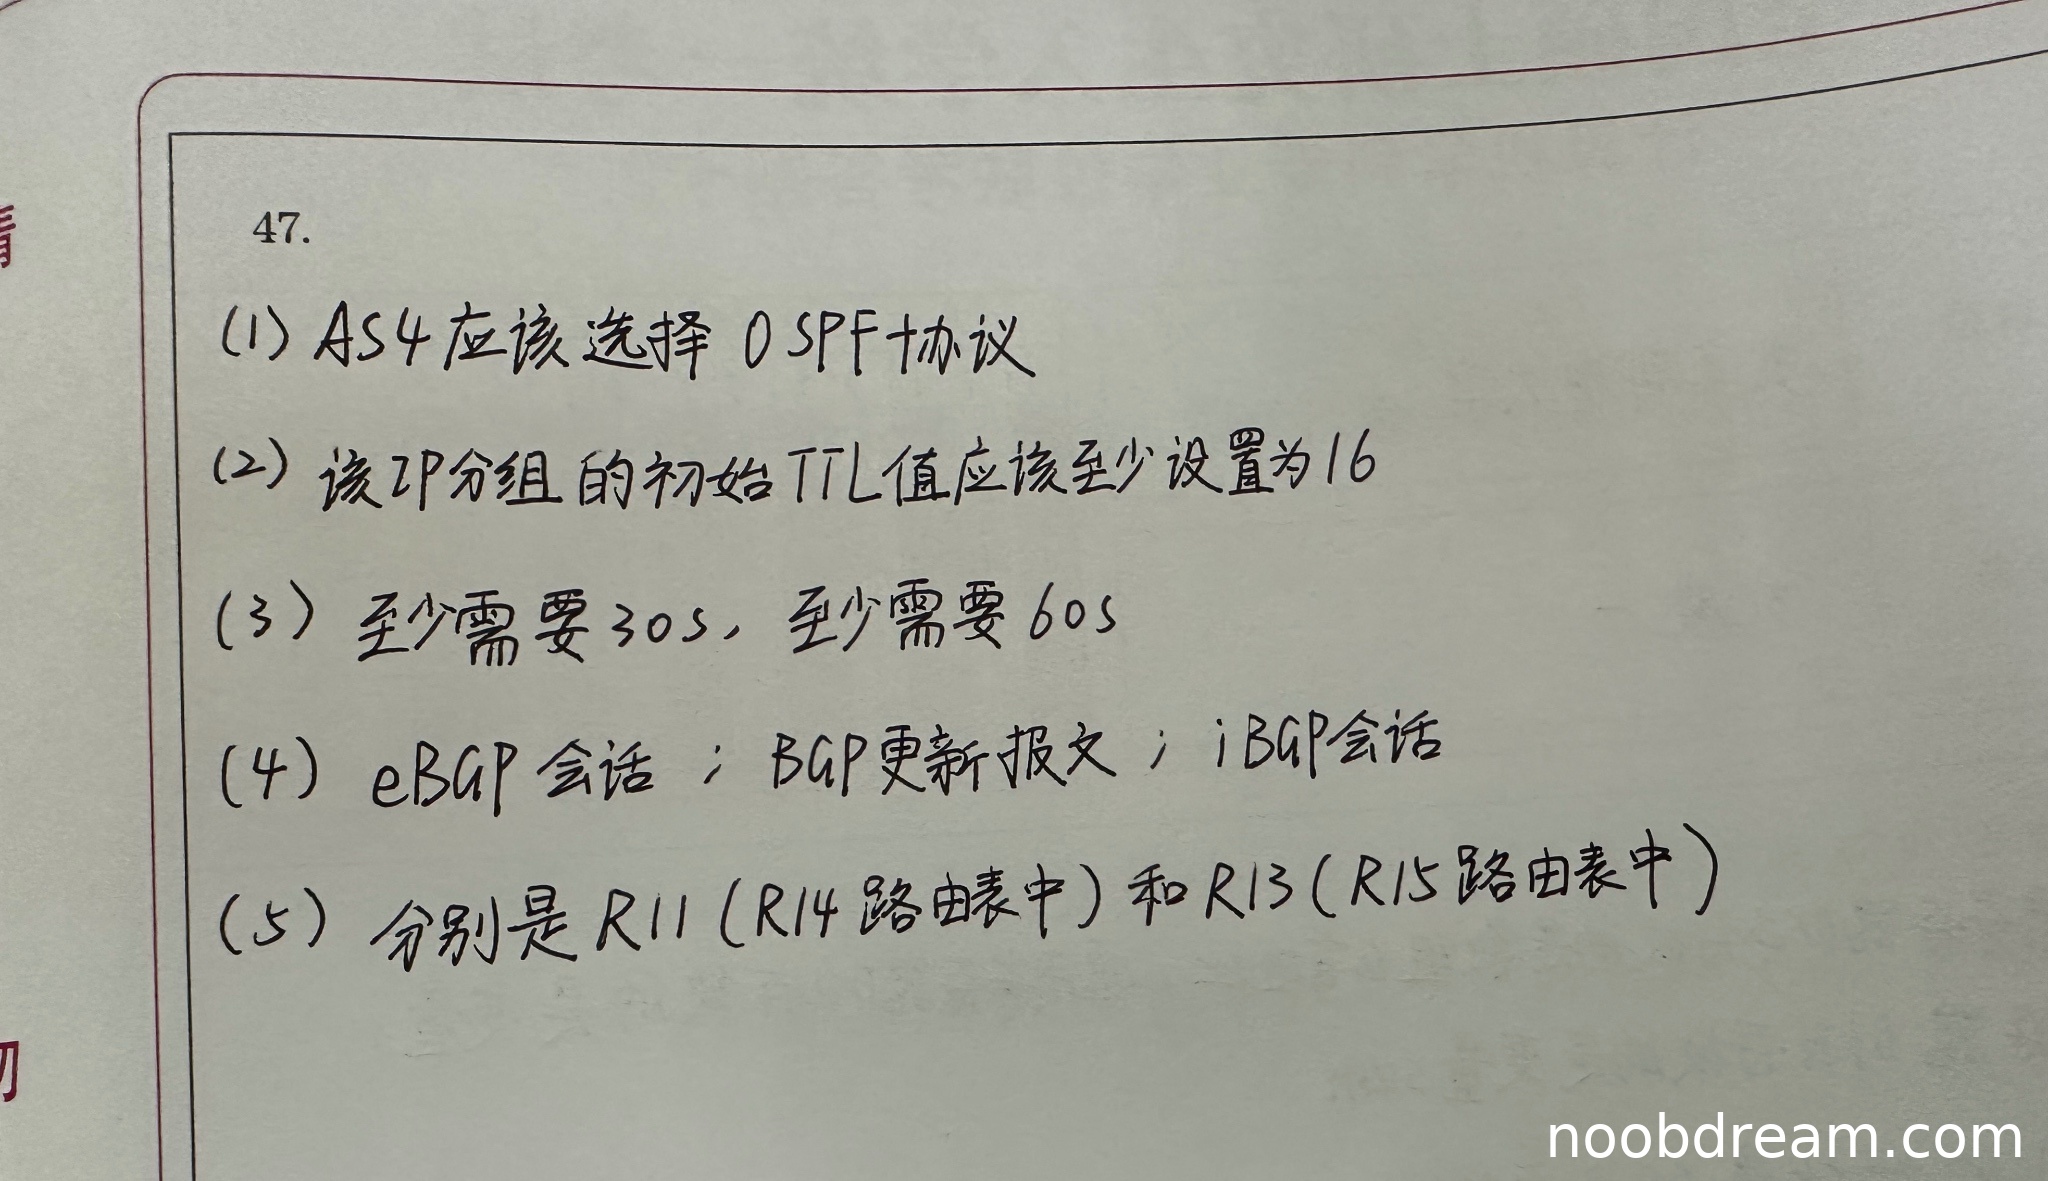 47.
(1) AS4应该选择 OSPF协议
(2) 该IP分组的初始TTL值应该至少设置为16
(3) 至少需要30s, 至少需要60s
(4) eBGP会话 ; BGP更新报文 ; iBGP会话
(5) 分别是R11(R14路由表中)和R13(R15路由表中)
noobdream.com